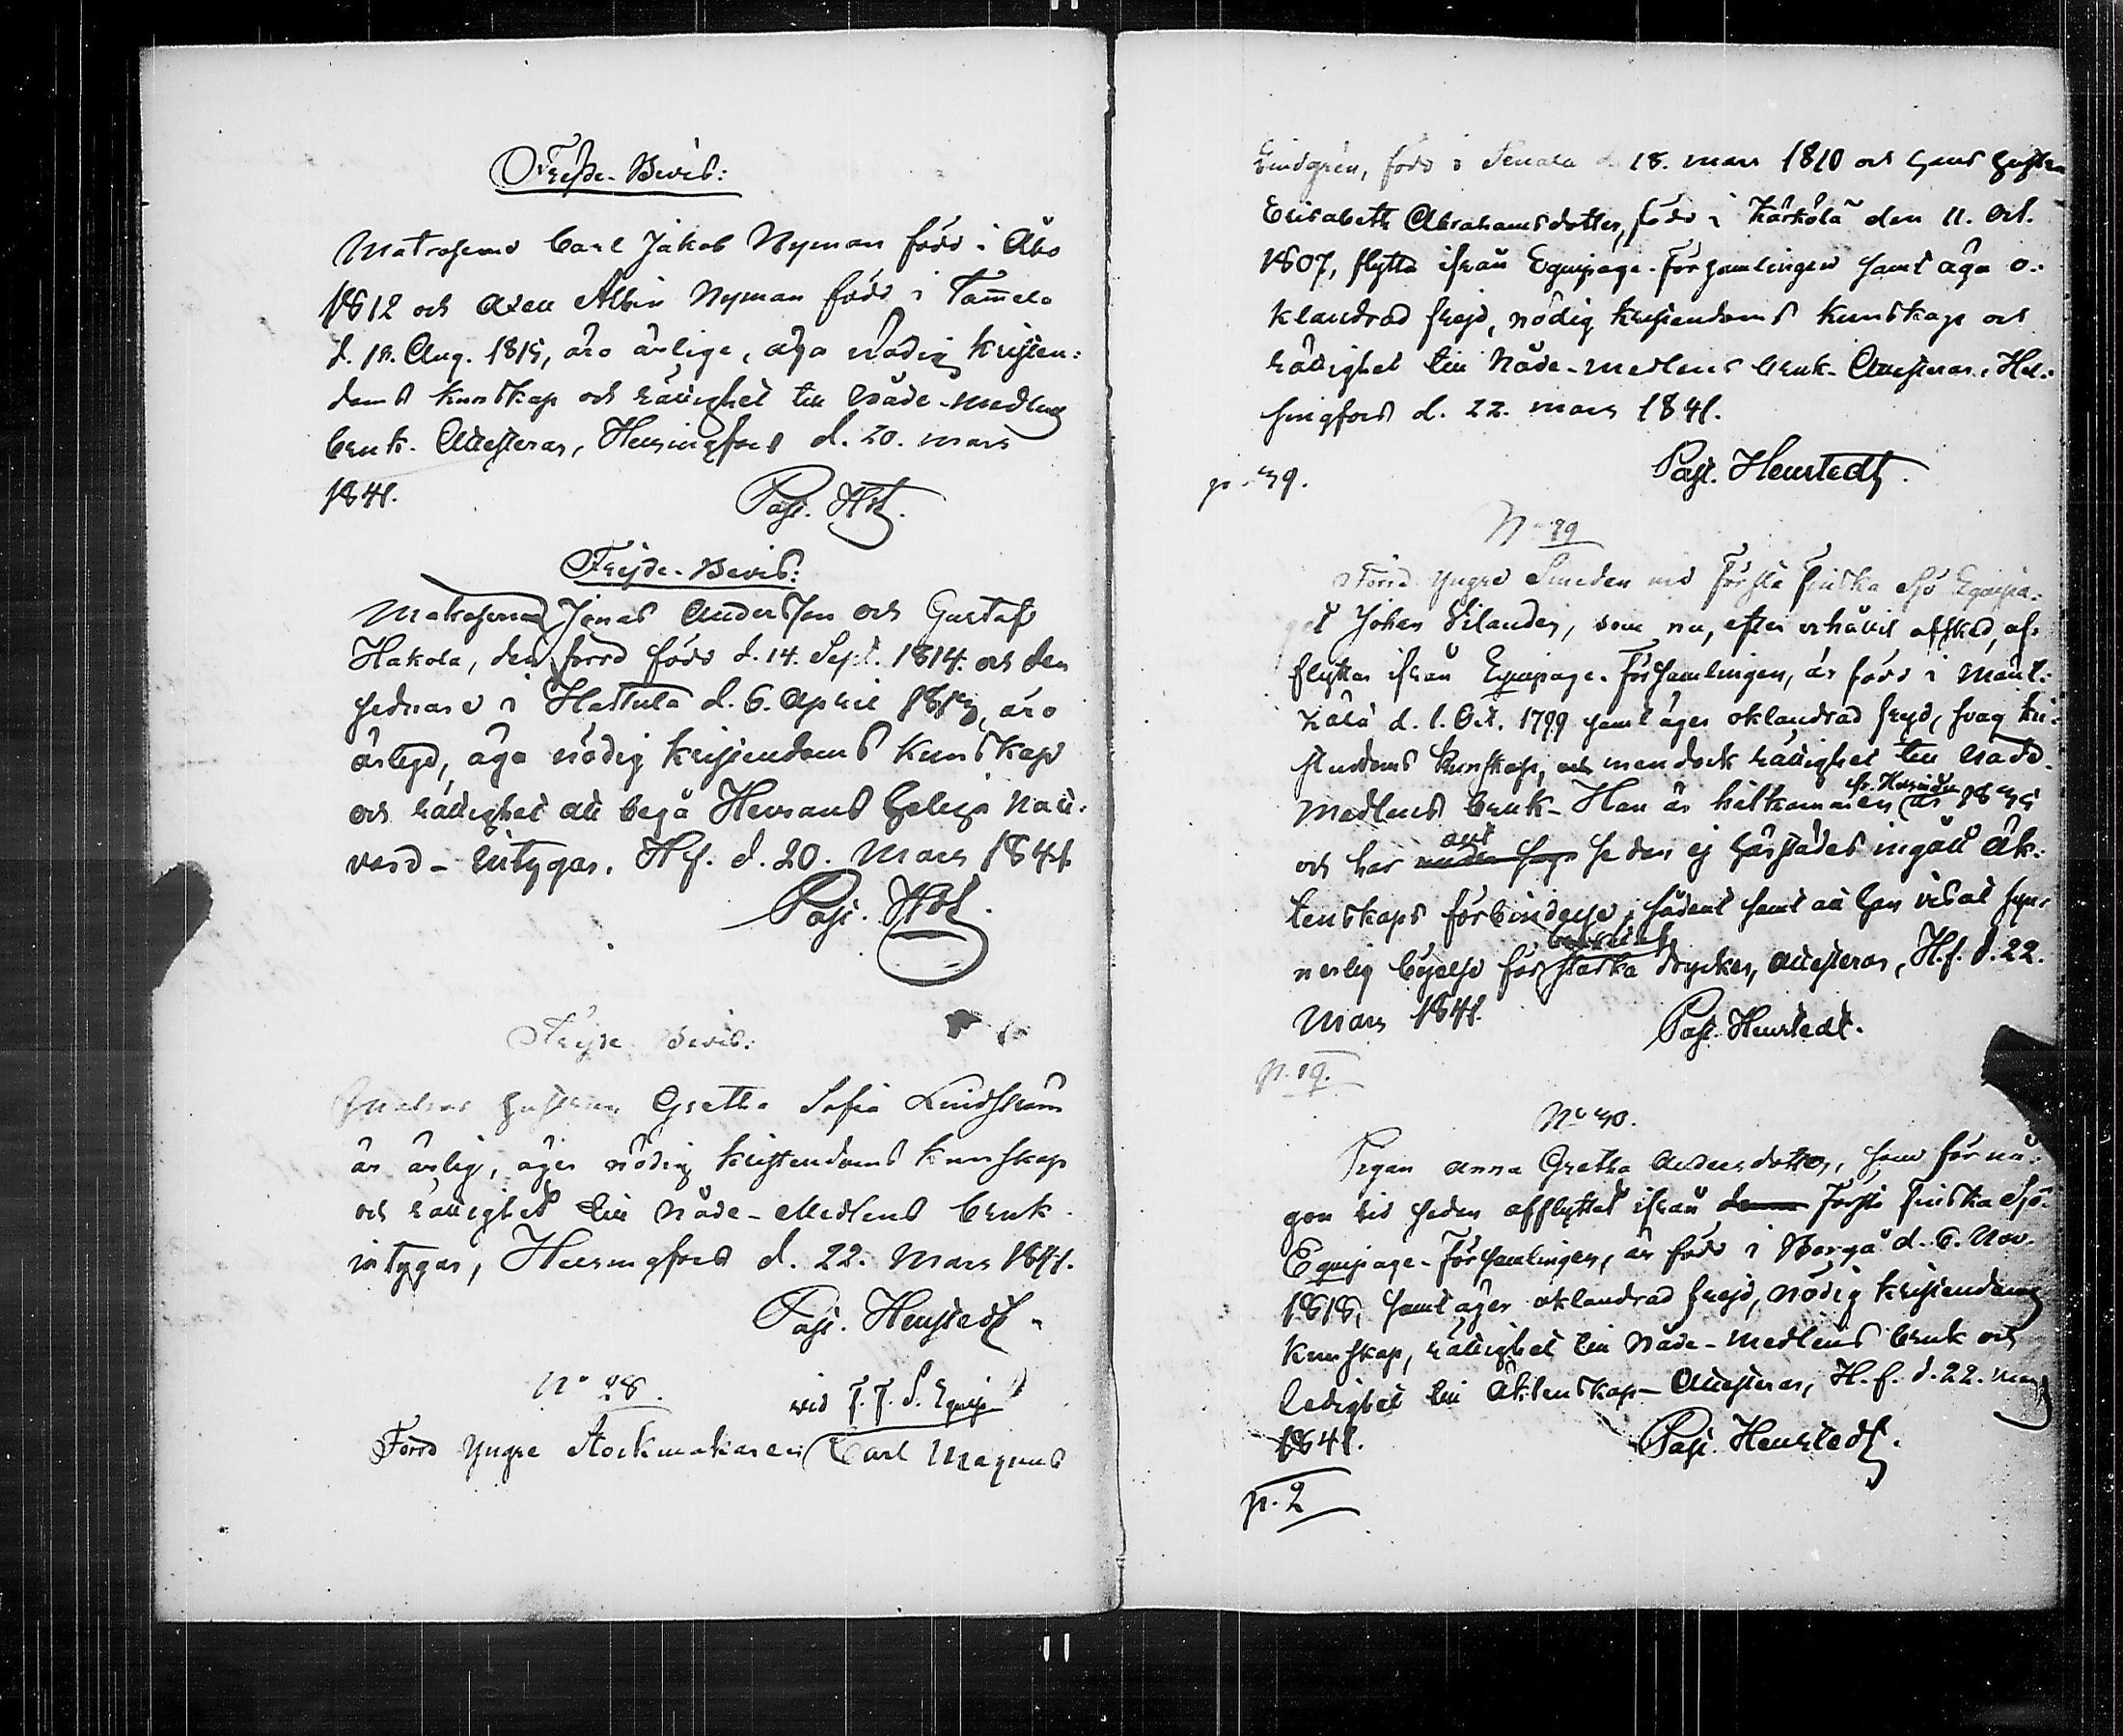 Frejde-Bevis:
Matroserne Carl Jakob Nyman född i Åbo
1812 och Axell Albin Nyman född i Tam̄ela
d. 12. Aug. 1815, äro ärlige, äga nödig kristen:
doms kunskap och rättighet till Nåde-medlens
bruk. Attesteras, Helsingfors d. 20. mars
1841. Past. Hst.
Frejde-Bevis:
Matroserne Jonas Andersson och Gustaf
Hakola, den förre född d. 14. Sept. 1814. och den
sednare i Hattula d. 6. April, äro
ärlige, äga nödig kristendoms kunskap
och rättighet att begå Herrans Heliga Natt:
vard - Intygar. Hf. d. 20. Mars 1841
Past. Hst.
Frejde-Bevis:
hustrun Gretha Sofia Lindström
är ärlig, äger nödig kristendoms kunskap
och rättighet till Nåde-Medlens bruk.
intygar, Helsingfors d. 22. Mars 1841.
Past. Henstedt.
N° 28. vid F. F. S. Equip
Förre yngre Stockmakaren Carl Magnus
Lindgrén, född i Tenala d. 18. mars 1810 och hans hustru
Elisabeth Abrahamsdotter, född i Kärkölä den 11. Oct.
1807, flytta ifrån Equipage-Församlingen samt äga o:
klandrad frejd, nödig kristendoms kunskap och
rättighet till Nåde-medlens bruk. Attesteras. Hel:
singfors d. 22. mars 1841.
p. 39. Past. Henstedt.
N° 29
Förre yngre Smeden vid Första Finska Sjö Equipa:
get Johan Silander, som nu, efter erhållit afsked, af:
flyttar ifrån Equipage-Församlingen, är född i Mänt:
zälä d. 1. Oct. 1799 samt äger oklandrad frejd, svag kri:
stendoms kunskap, och men dock rättighet till Nåde-
Medlens bruk - Han är hitkommen år
och har sedan ej härstädes ingått äk:
tenskaps förbindelse, sådant samt att han visat syn:
nerlig böjelse för starka drycker, attesteras, H.f. d. 22.
Mars 1841. Past. Henstedt.
p. 19.
N° 30.
Pigan Anna Gretha Andersdotter, som för nå:
gon tid sedan afflyttat ifrån denna Första Finska Sjö-
Equipage-Församlingen, är född i Borgå d. 6. Nov.
1818, samt äger oklandrad frejd, nödig kristendoms
kunskap, rättighet till Nåde-medlens bruk och
ledighet till äktenskap - Attesteras, H.f. d. 22. mars
1841. Past. Henstedt.
p. 2